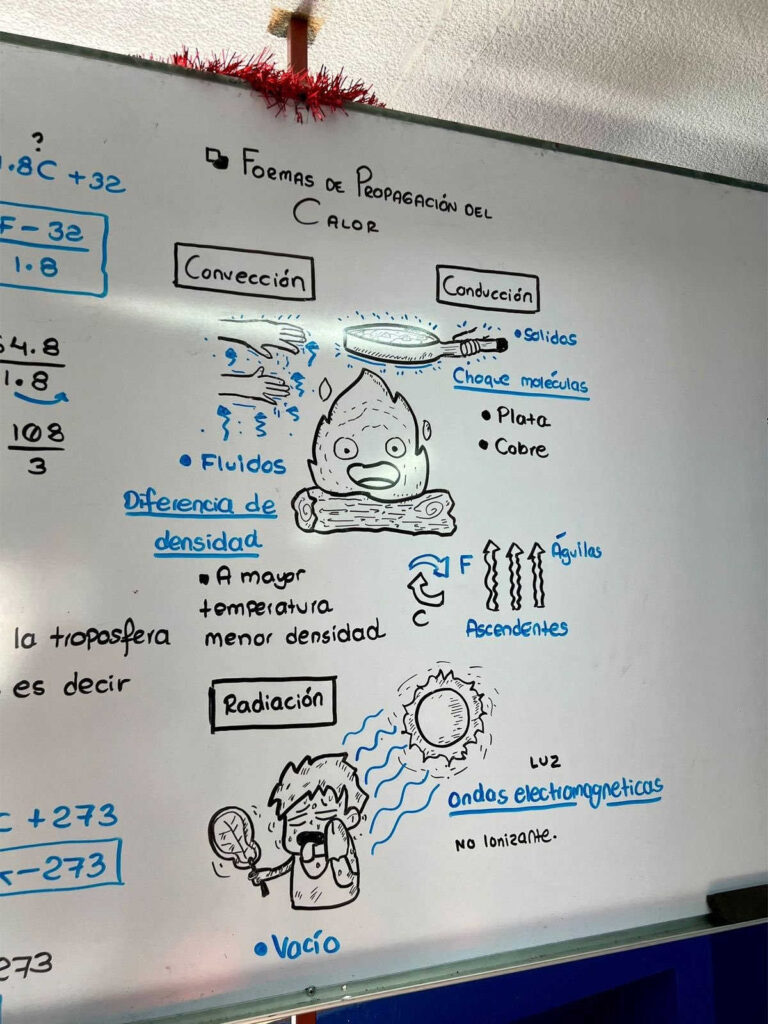 ?
1.8C +32
F - 32
1.8
54.8
1.8
108
3
la troposfera
es decir
C +273
K-273
273
Formas de Propagación del
Calor
Convección
• Fluidos
Diferencia de
densidad
• A mayor
temperatura
menor densidad
Conducción
• Solidos
Choque moléculas
• Plata
• Cobre
F
C
Águilas
Ascendentes
Radiación
LUZ
ondas electromagneticas
No Ionizante.
• Vacío